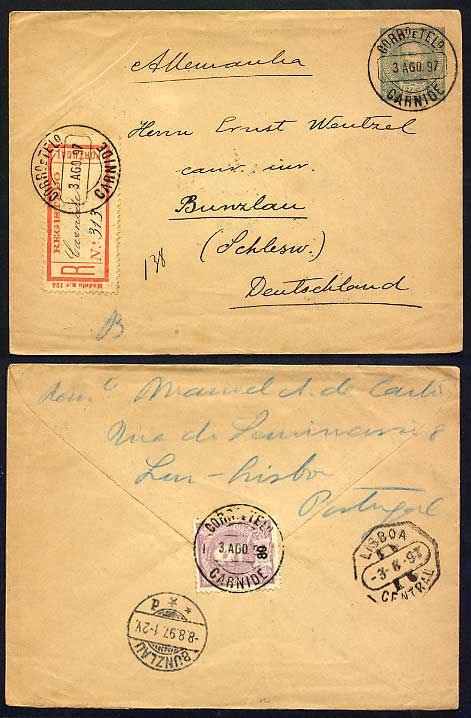 CORRO E TELO
3 AGO 97
CARNIDE
Allemanha
Herrn Ernst Wentzel
cand. iur.
Bunzlau
(Schlesw.)
Deutschland
CORRO E TELO
3 AGO 97
CARNIDE
PORTUGAL
REGISTADO
Carnide
R N.º 313
Modelo n.º 124
138
Manuel A. de
Rua do Seminario 8
Luz - Lisboa
Portugal
CORRO E TELO
3 AGO 97
CARNIDE
80
LISBOA
-3-8-97
CENTRAL
BUNZLAU
-8.8.97.1-2N.
d